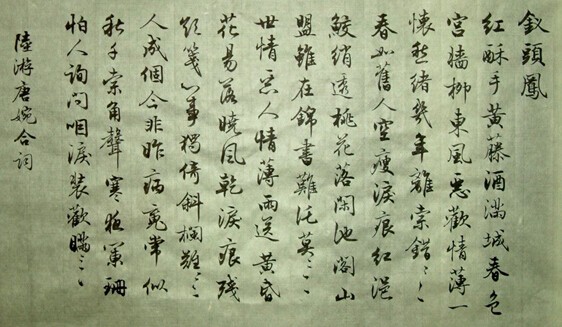 釵頭鳳
紅酥手黃藤酒滿城春色
宮墻柳東風惡歡情薄一
懷愁緒幾年離索錯〻〻
春如舊人空瘦淚痕紅浥
鮫綃透桃花落閑池閣山
盟雖在錦書難託莫〻〻
世情惡人情薄雨送黃昏
花易落曉風乾淚痕殘
欲箋心事獨倚斜欄難〻〻
人成個今非昨病魂常似
秋千索角聲寒夜闌珊
怕人詢問咽淚裝歡瞞〻〻
陸游唐婉合詞